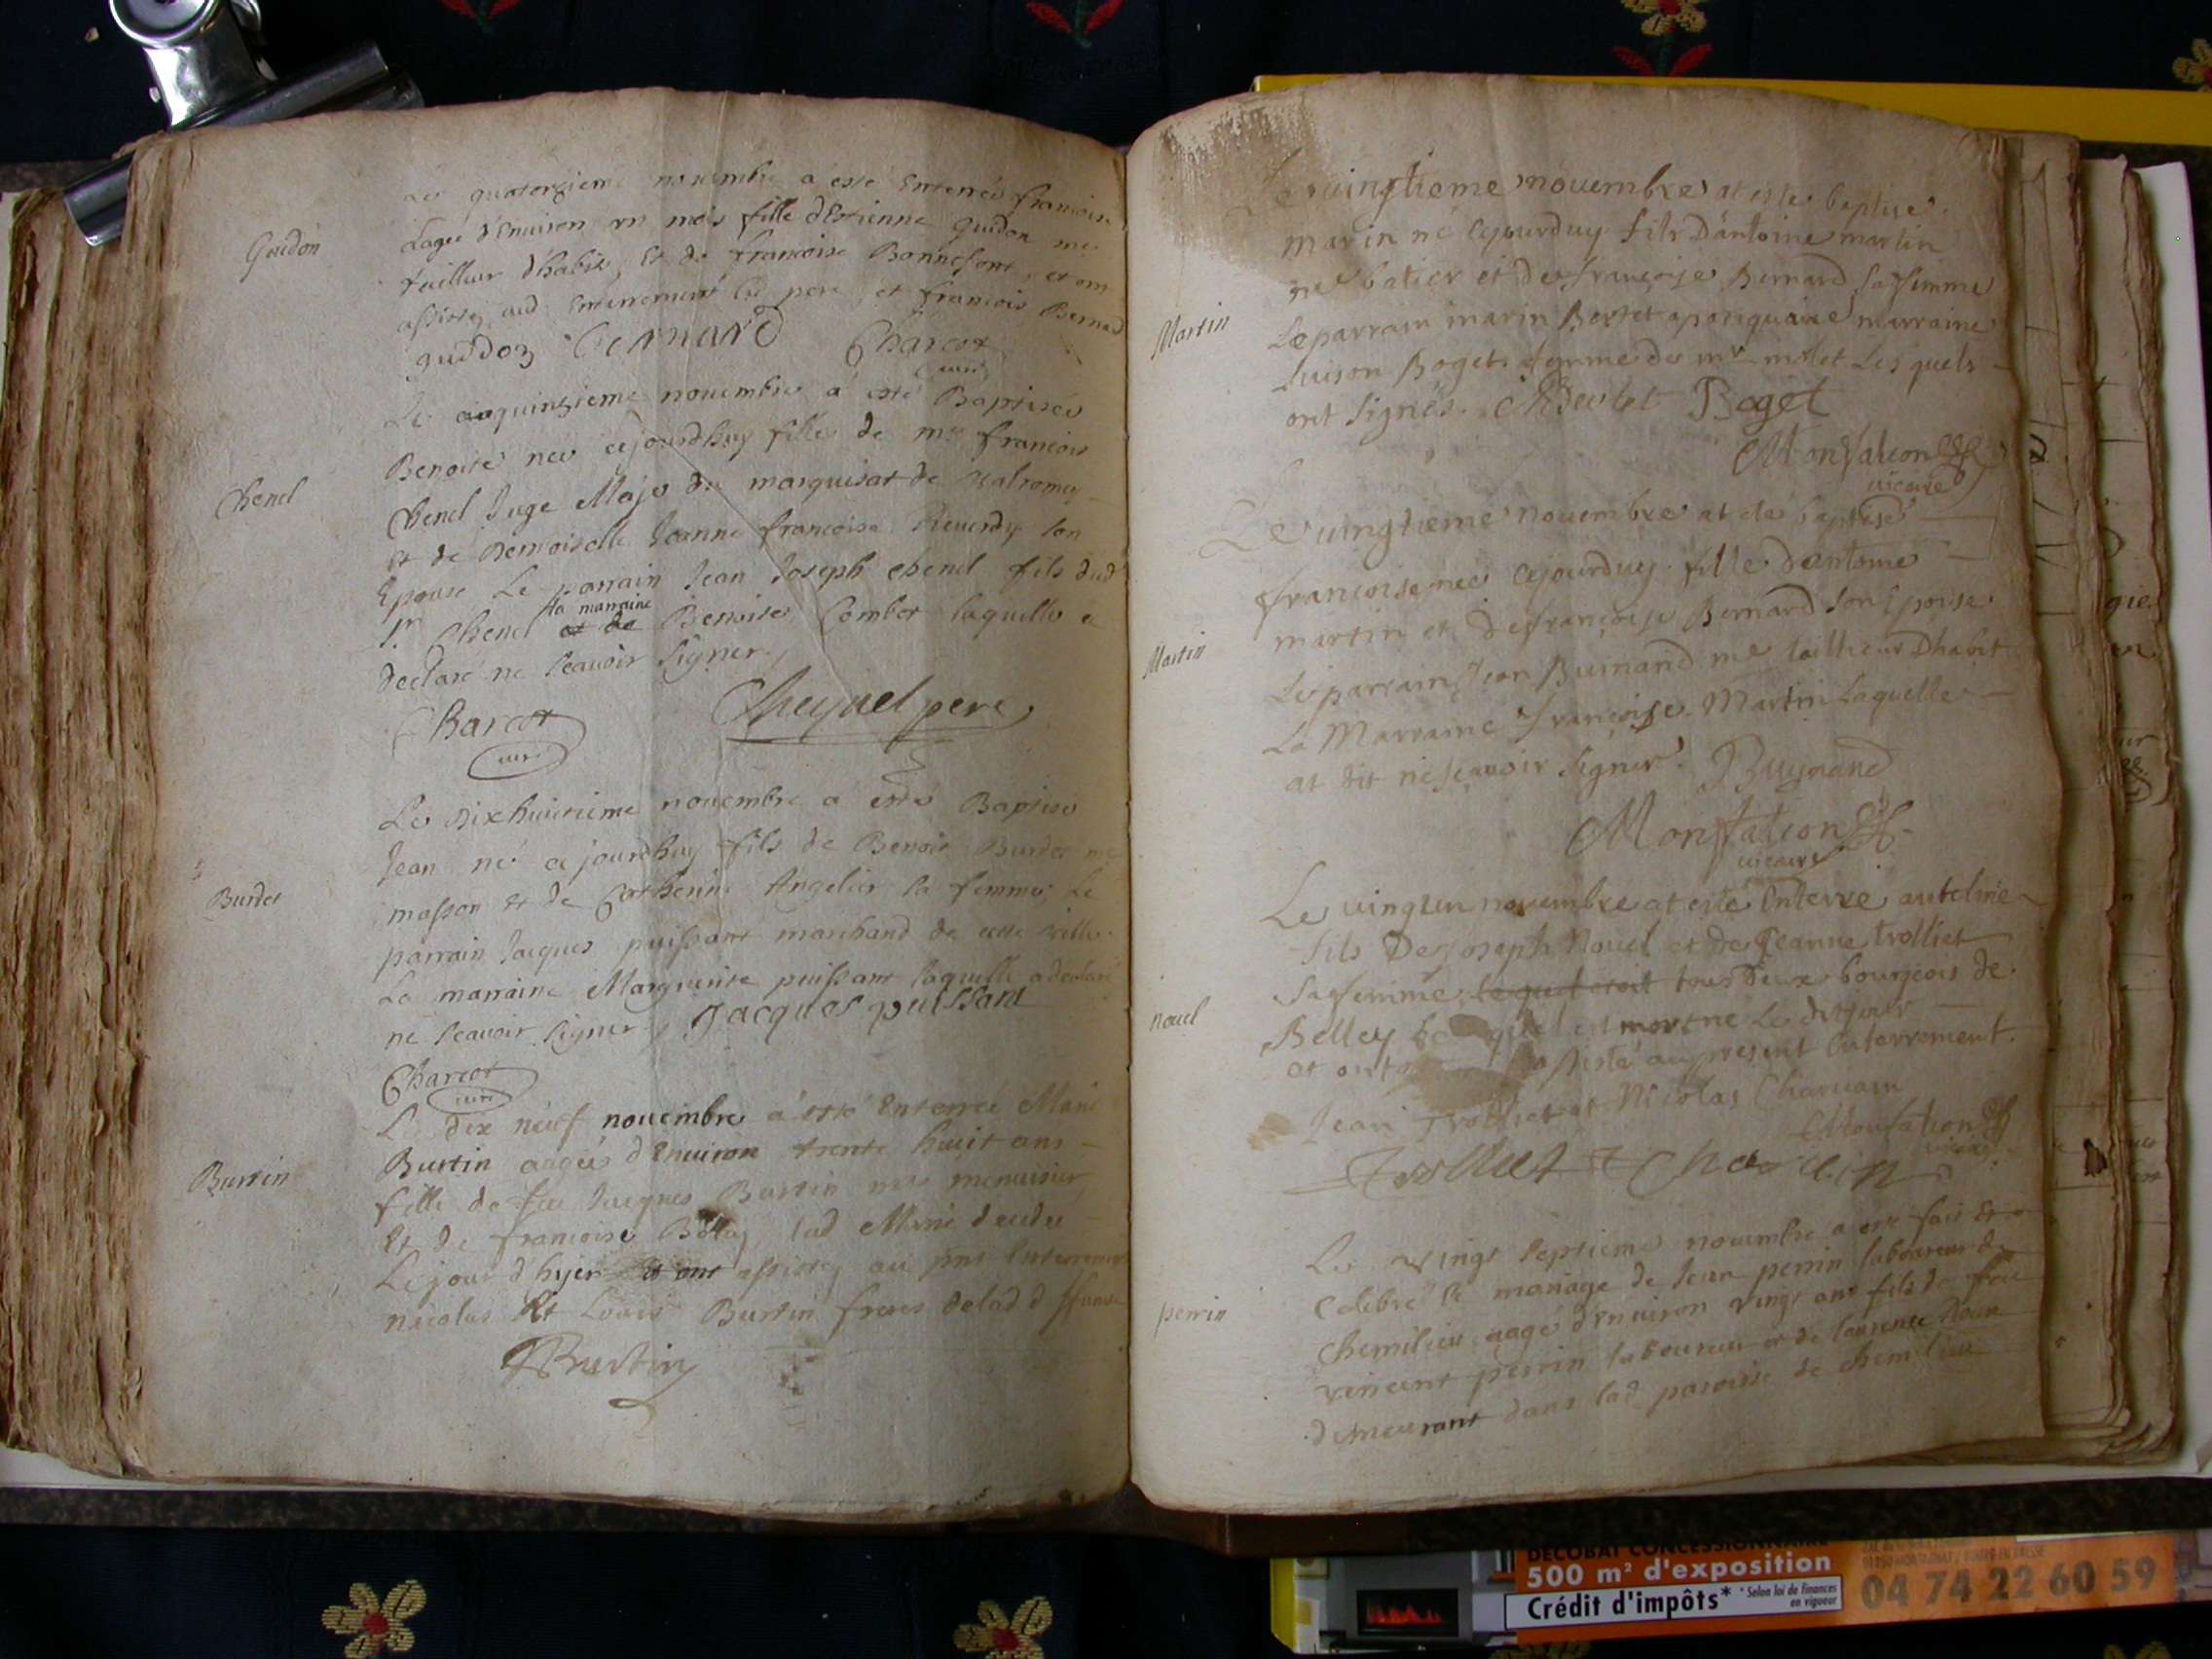 Le quatorzieme nouembre a esté Enterrée francoise
Guidon
aagée d'Enuiron vn mois fille d'Estienne guidon me
tailleur d'habit, et de francoise Bonnefont, et ont
assistez aud Enterrement le pere, et francois Bernard
guidon Bernard Charcot
curé
Le quinzieme nouembre a esté Baptisée
Benoite née cejourdhuy fille de mre francois
Chenel
Chenel Juge Maje du marquisat de valromey
Et de Demoiselle Jeanne francoise Reuerdy son
Epouse Le parrain Jean Joseph chenel fils dud
la marraine
Sr Chenel et de Benoite Combet laquelle a
declaré ne scauoir signer.
Charcot Cheynel pere
curé
Le dixhuitieme nouembre a esté Baptisé
Jean né cejourdhuy fils de Benoit Burdet me
Burdet
masson et de Catherine Angelier sa femme, Le
parrain Jacques puissant marchand de cette ville.
La marraine Marguerite puissant laquelle a declaré
ne scauoir signer, Jacques puissant
Charcot
curé
Le dix neuf nouembre a esté Enterrée Marie
Burtin
Burtin aagée d'Enuiron trente huit ans
fille de feu Jacques Burtin me menuisier,
Et de francoise lad Marie decedée
Le jour d'hyer et ont assistez au pnt Enterrement
nicolas Et Louis Burtin freres delad deffunte
Burtin
Le vingtieme nouembre at esté baptisé
marin né cejourduy fils D'antoine martin
me batier et de françoise Bernard sa femme
Martin
Le parrain marin apotiquaire marraine
Luison Boget femme de mr molet Lesquels
ont signés. Boget
Monfalcon
vicaire
Le vingtieme nouembre at eté baptisé
françoise née cejourduy fille dantoine
martin et de françoise Bernard son Epouse
Martin
Le parrain Jean Buynand me tailleur Dhabit
La Marraine françoise Martin Laquelle
at dit ne sçauoir signer. Buynand
Monfalcon
vicaire
Le vingtun nouembre at esté Enterré antelme
fils De Joseph Nouel et de Jeanne trolliet
sa femme, lequel etoit tous Deux bourgeois de
nouel
Belley lequel est mort né Le dit jour
et ont assisté au present Enterrement.
Jean Trolliet et Nicolas Charuain
Monfalcon
vicaire
Trolliet
Le vingt septieme nouembre a esté fait et
Celebré le mariage de Jean perrin laboureur de
perrin
Chemilieu, aagé d'Enuiron vingt ans fils de feu
vincent perrin laboureur et de laurence
demeurant dans lad paroisse de chemilieu
DECOBAT CONCESSIONNAIRE
500 m² d'exposition
Crédit d'impôts* *Selon loi de finances
en vigueur
04 74 22 60 59